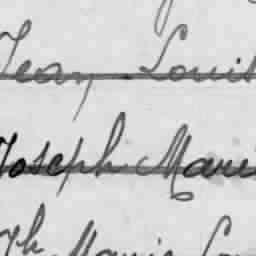 Jean, Louis
Joseph Marie
Th Marie